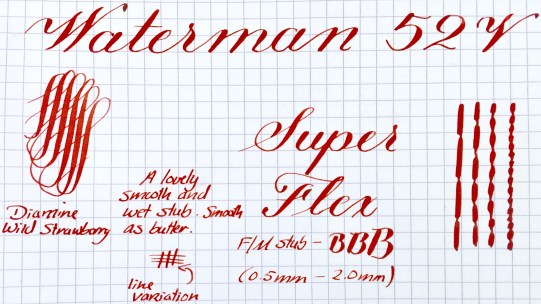 Waterman 52V
Super
Flex
F/M stub - BBB
(0.5mm - 2.0mm)
A lovely
smooth and
wet stub. Smooth
as butter.
line
variation
Diamine
Wild Strawberry